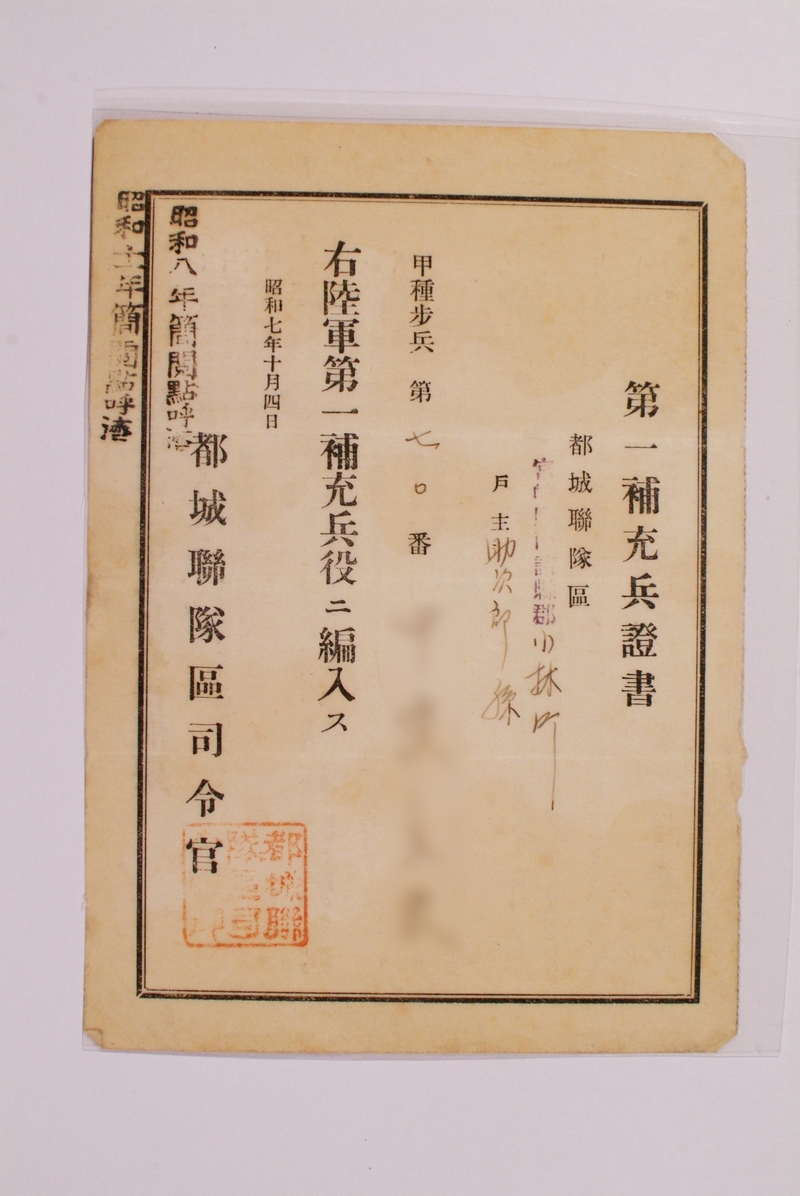 第一補充兵證書
都城聯隊區
郡小林町
戶主助次郎孫
甲種步兵 第七〇番
右陸軍第一補充兵役ニ編入ス
昭和七年十月四日
都城聯隊區司令官
昭和八年簡閱點呼濟
昭和十一年簡閱點呼濟